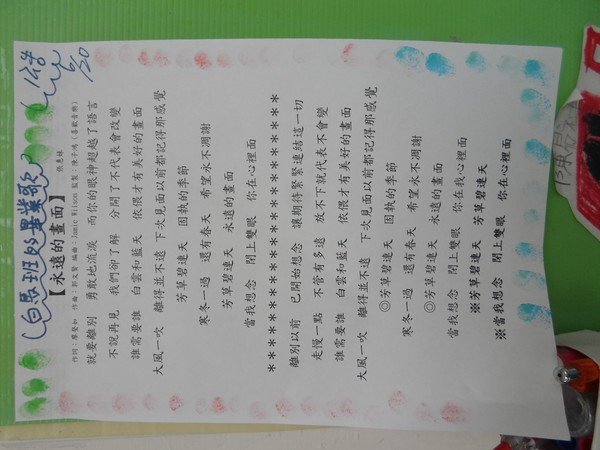 白馬班的畢業歌
6/20
【永遠的畫面】
張惠妹
作詞：廖瑩如 作曲：郭文賢 編曲：Jamie Wilson 監製：
就要離別 勇敢地流淚 而你的眼神超越了語言
不說再見 我們卻了解 分開了不代表會改變
誰需要誰 白雲和藍天 依偎才有美好的畫面
大風一吹 離得並不遠 下次見面以前都記得那感覺
芳草碧連天 固執的季節
寒冬一過 還有春天 希望永不凋謝
芳草碧連天 永遠的畫面
當我想念 閉上雙眼 你在心裡面
＊＊＊＊＊＊＊＊＊＊＊＊＊＊＊＊＊＊
離別以前 已開始想念 讓期待緊緊連結這一切
走慢一點 不管有多遠 放不下就代表不會變
誰需要誰 白雲和藍天 依偎才有美好的畫面
大風一吹 離得並不遠 下次見面以前都記得那感覺
◎芳草碧連天 固執的季節
寒冬一過 還有春天 希望永不凋謝
◎芳草碧連天 永遠的畫面
當我想念 閉上雙眼 你在我心裡面
※芳草碧連天 芳草碧連天
※當我想念 閉上雙眼 你在心裡面
陳